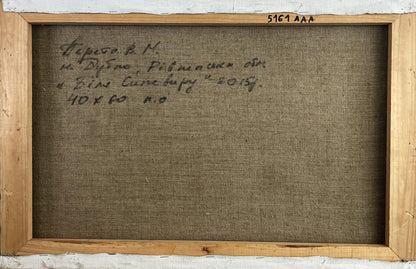 5161 AAA
В. М.
м. Дубно, Рівненська обл
„Біля Синевиру" 2015р.
40 х 60 п.о